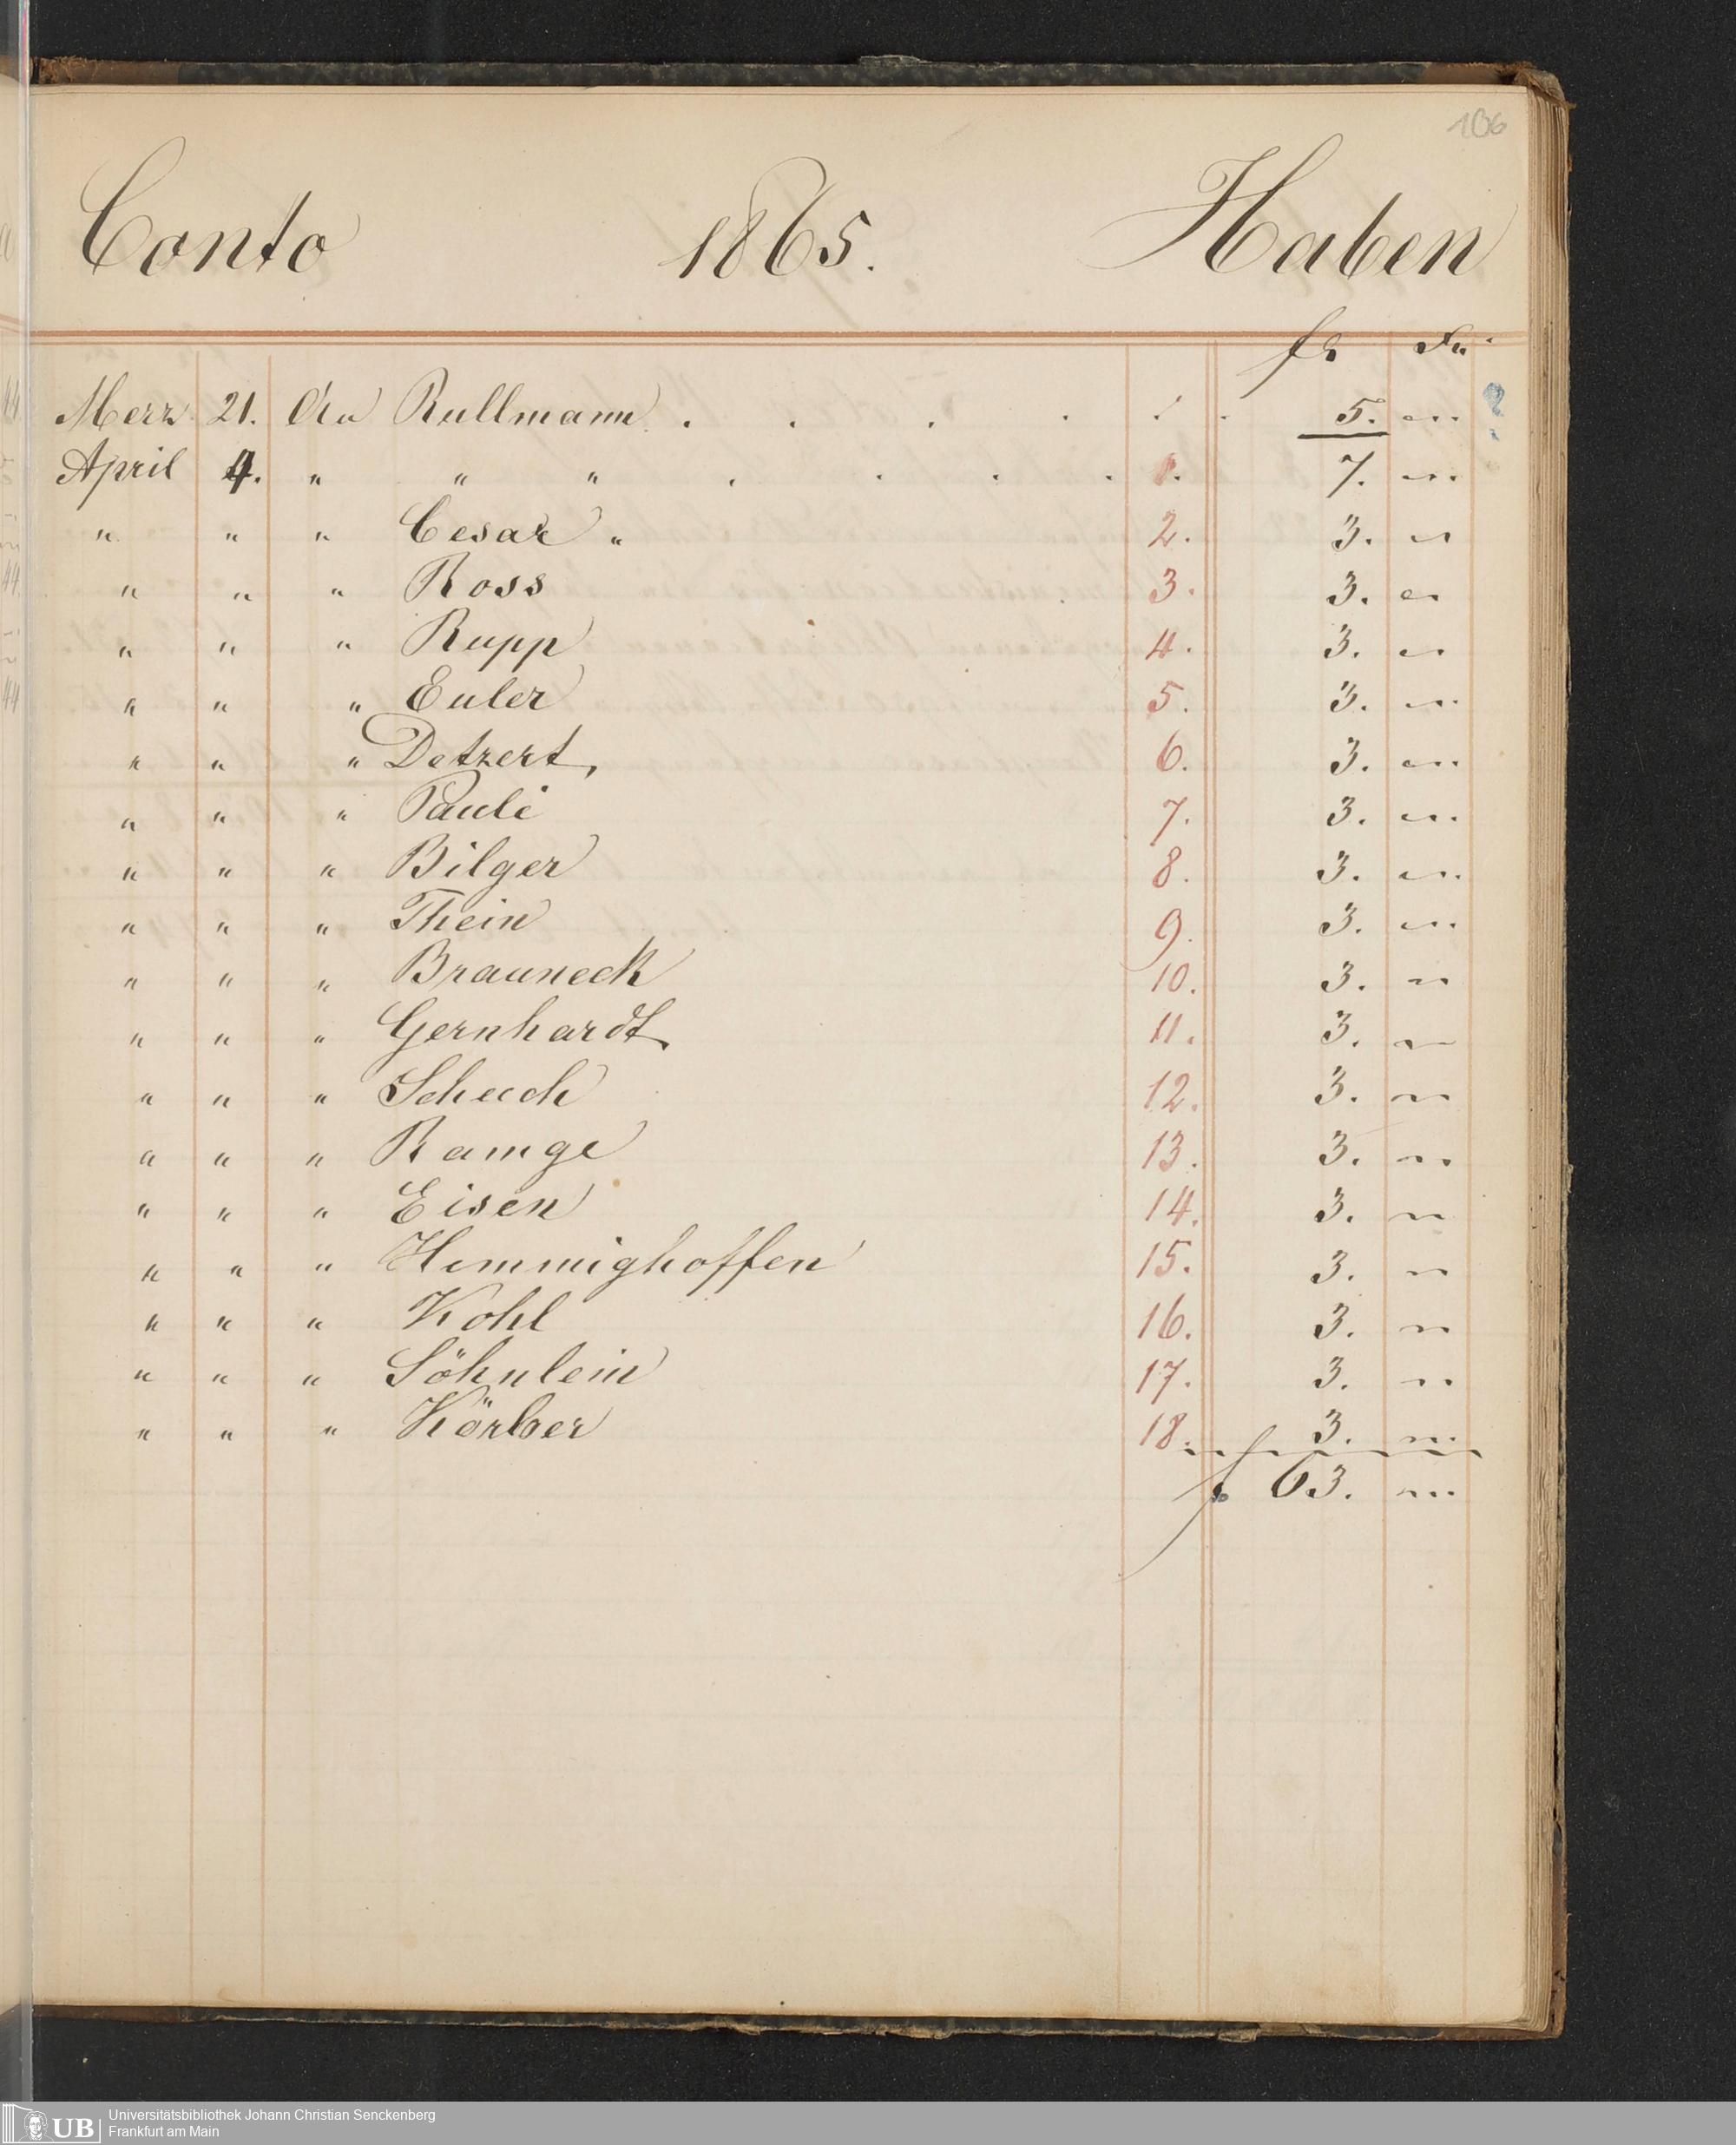 106
Conto 1865. Haben
fr
Merz 21. An Rullmann . . . . . . 5. „ „
April 4. „ „ „ . . . . 1. 7. „ „
„ „ „ Cesar „ 2. 3. „
„ „ „ Ross 3. 3. „
„ „ „ Rupp 4. 3. „
„ „ „ Euler 5. 3. „
„ „ „ Detzert, 6. 3. „
„ „ „ Pauli 7. 3. „
„ „ „ Bilger 8. 3. „
„ „ „ Thein 9. 3. „
„ „ „ Brauneck 10. 3. „
„ „ „ Gernhardt 11. 3. „
„ „ „ Schuch 12. 3. „
„ „ „ Ramge 13. 3. „
„ „ „ Eisen 14. 3. „
„ „ „ Himmighoffen 15. 3. „
„ „ „ Kohl 16. 3. „
„ „ „ Söhnlein 17. 3. „
„ „ „ Körber 18. 3. „
f 63. „
UB Universitätsbibliothek Johann Christian Senckenberg
Frankfurt am Main